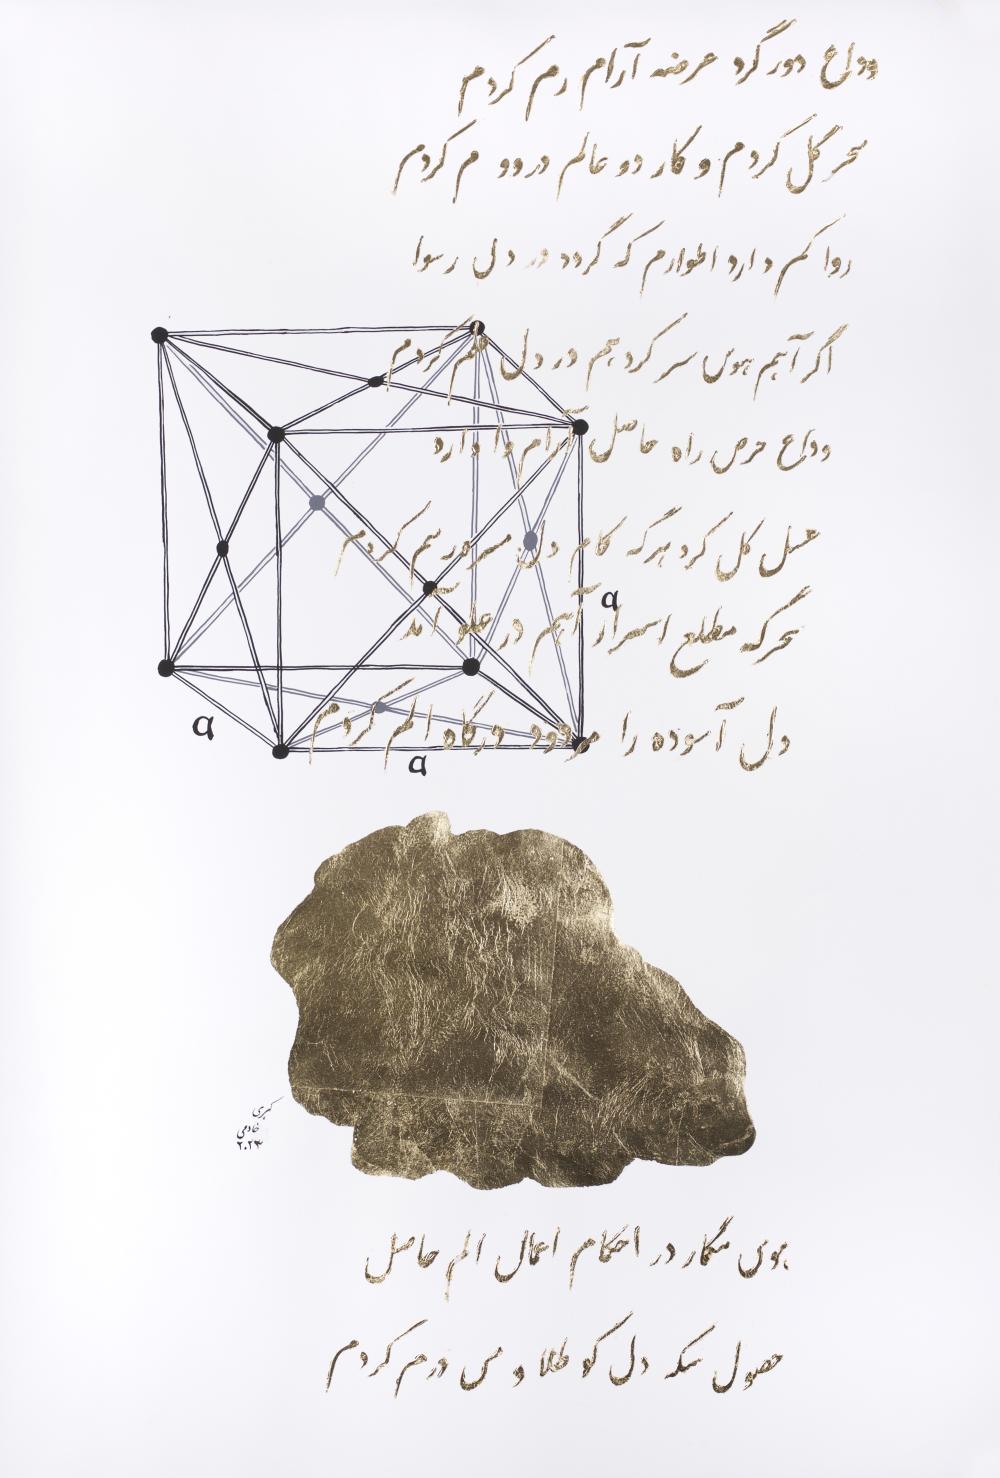 وداع دور گرد عرضه آرام رم کردم
سحر گل کردم و کار دو عالم در دو م کردم
روا کم دارد اطوارم که گردد در دل رسوا
اگر آهم هوس سر کرد هم در دل علم کردم
وداع حرص راه حاصل آرام وا دارد
عسل گل کرد هرگه کام دل سم کردم
سحرگه مطلع اسرار آهم در علو آمد
دل آسوده را درگاه الم کردم
a
a
a
کبری
خادمی
۲۰۲۳
هوس مگمار در احکام اعمال الم حاصل
حصول سکه دل کو طلا و مس درم کردم